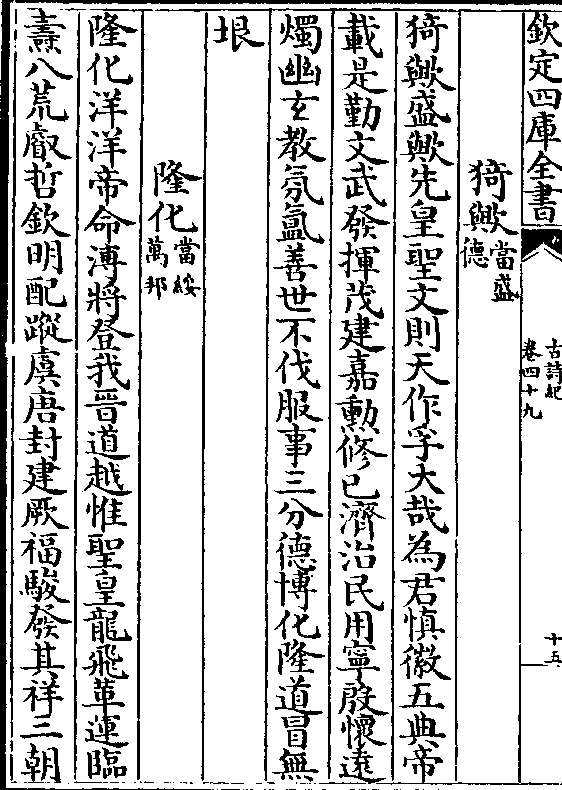 欽定四庫全書
古詩紀
卷四十九
十五
猗歟當盛德
猗歟盛歟先皇聖文則天作孚大哉為君慎徽五典帝
載是勤文武發揮茂建嘉勲修已濟治民用寧殷懷遠
燭幽玄教氛氲善世不伐服事三分德博化隆道冒無
垠
隆化當綏萬邦
隆化洋洋帝命溥將登我晉道越惟聖皇龍飛革運臨
燾八荒叡哲欽明配蹤虞唐封建厥福駿發其祥三朝